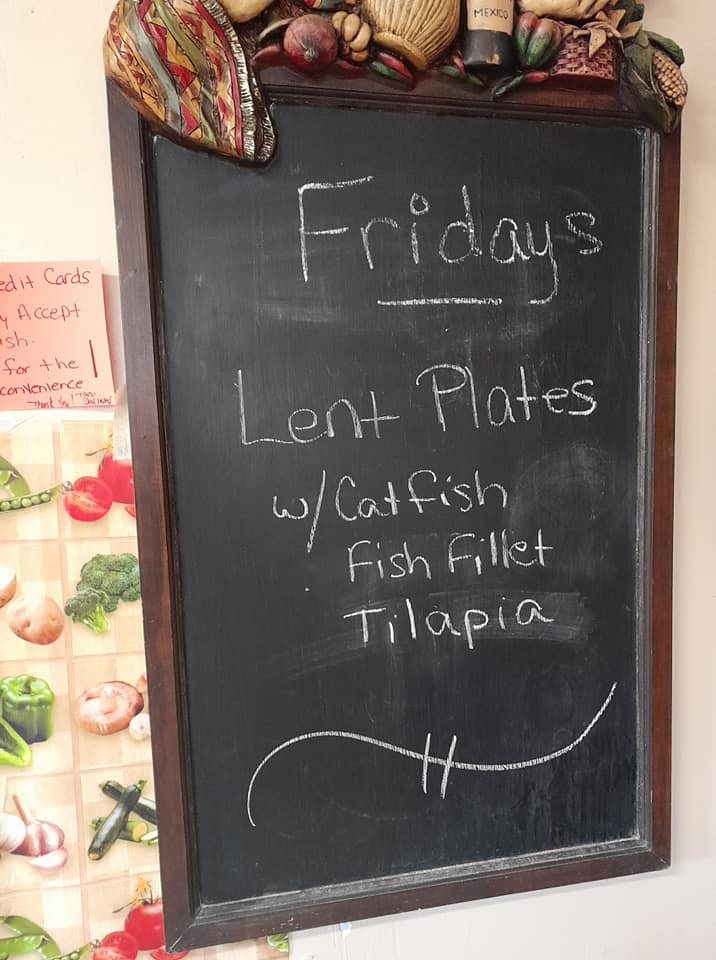 MEXICO
Fridays
Lent Plates
w/Catfish
Fish Fillet
Tilapia
edit Cards
y Accept
sh.
for the
convenience
Thank You!